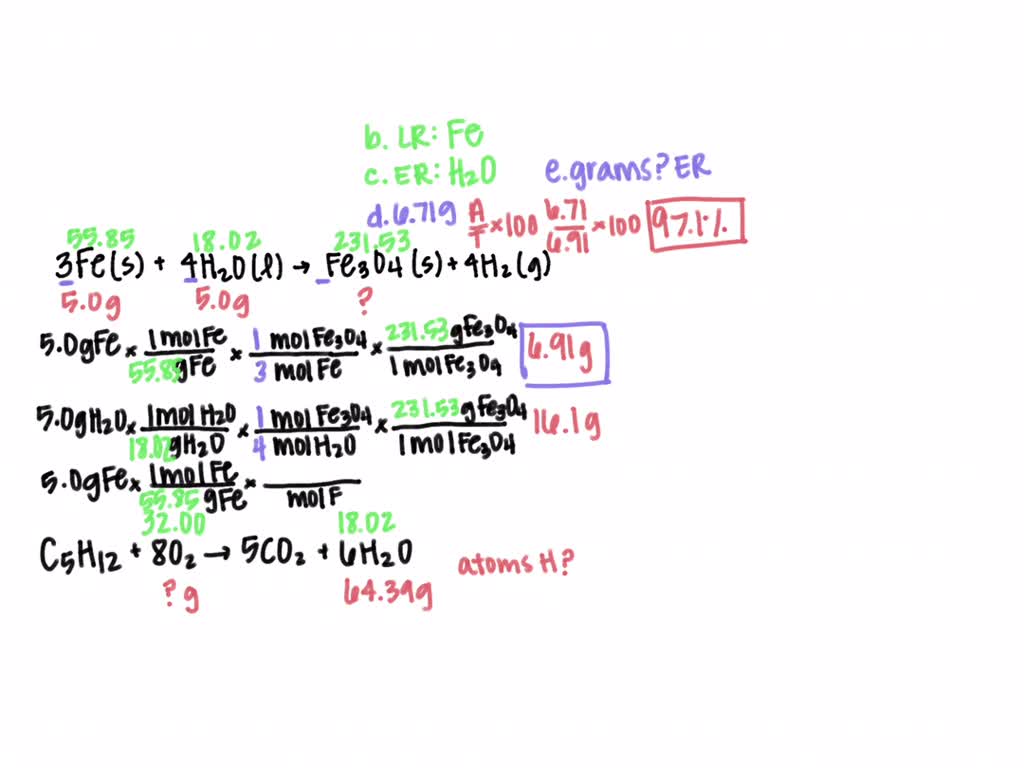 b. LR: Fe
c. ER: H₂O
e. grams? ER
d. 6.71g A/T × 100 6.71/6.91 × 100 97.1%
55.85 18.02 231.53
3Fe(s) + 4H₂O(l) → _Fe₃O₄(s) + 4H₂(g)
5.0g 5.0g ?
5.0gFe × 1molFe/55.85gFe × 1 molFe₃O₄/3 molFe × 231.53gFe₃O₄/1molFe₃O₄ 6.91g
5.0gH₂O × 1molH₂O/18.02gH₂O × 1 molFe₃O₄/4 molH₂O × 231.53gFe₃O₄/1molFe₃O₄ 16.1g
5.0gFe × 1molFe/55.85gFe × /molF
32.00 18.02
C₅H₁₂ + 8O₂ → 5CO₂ + 6H₂O atoms H?
? g 64.39g